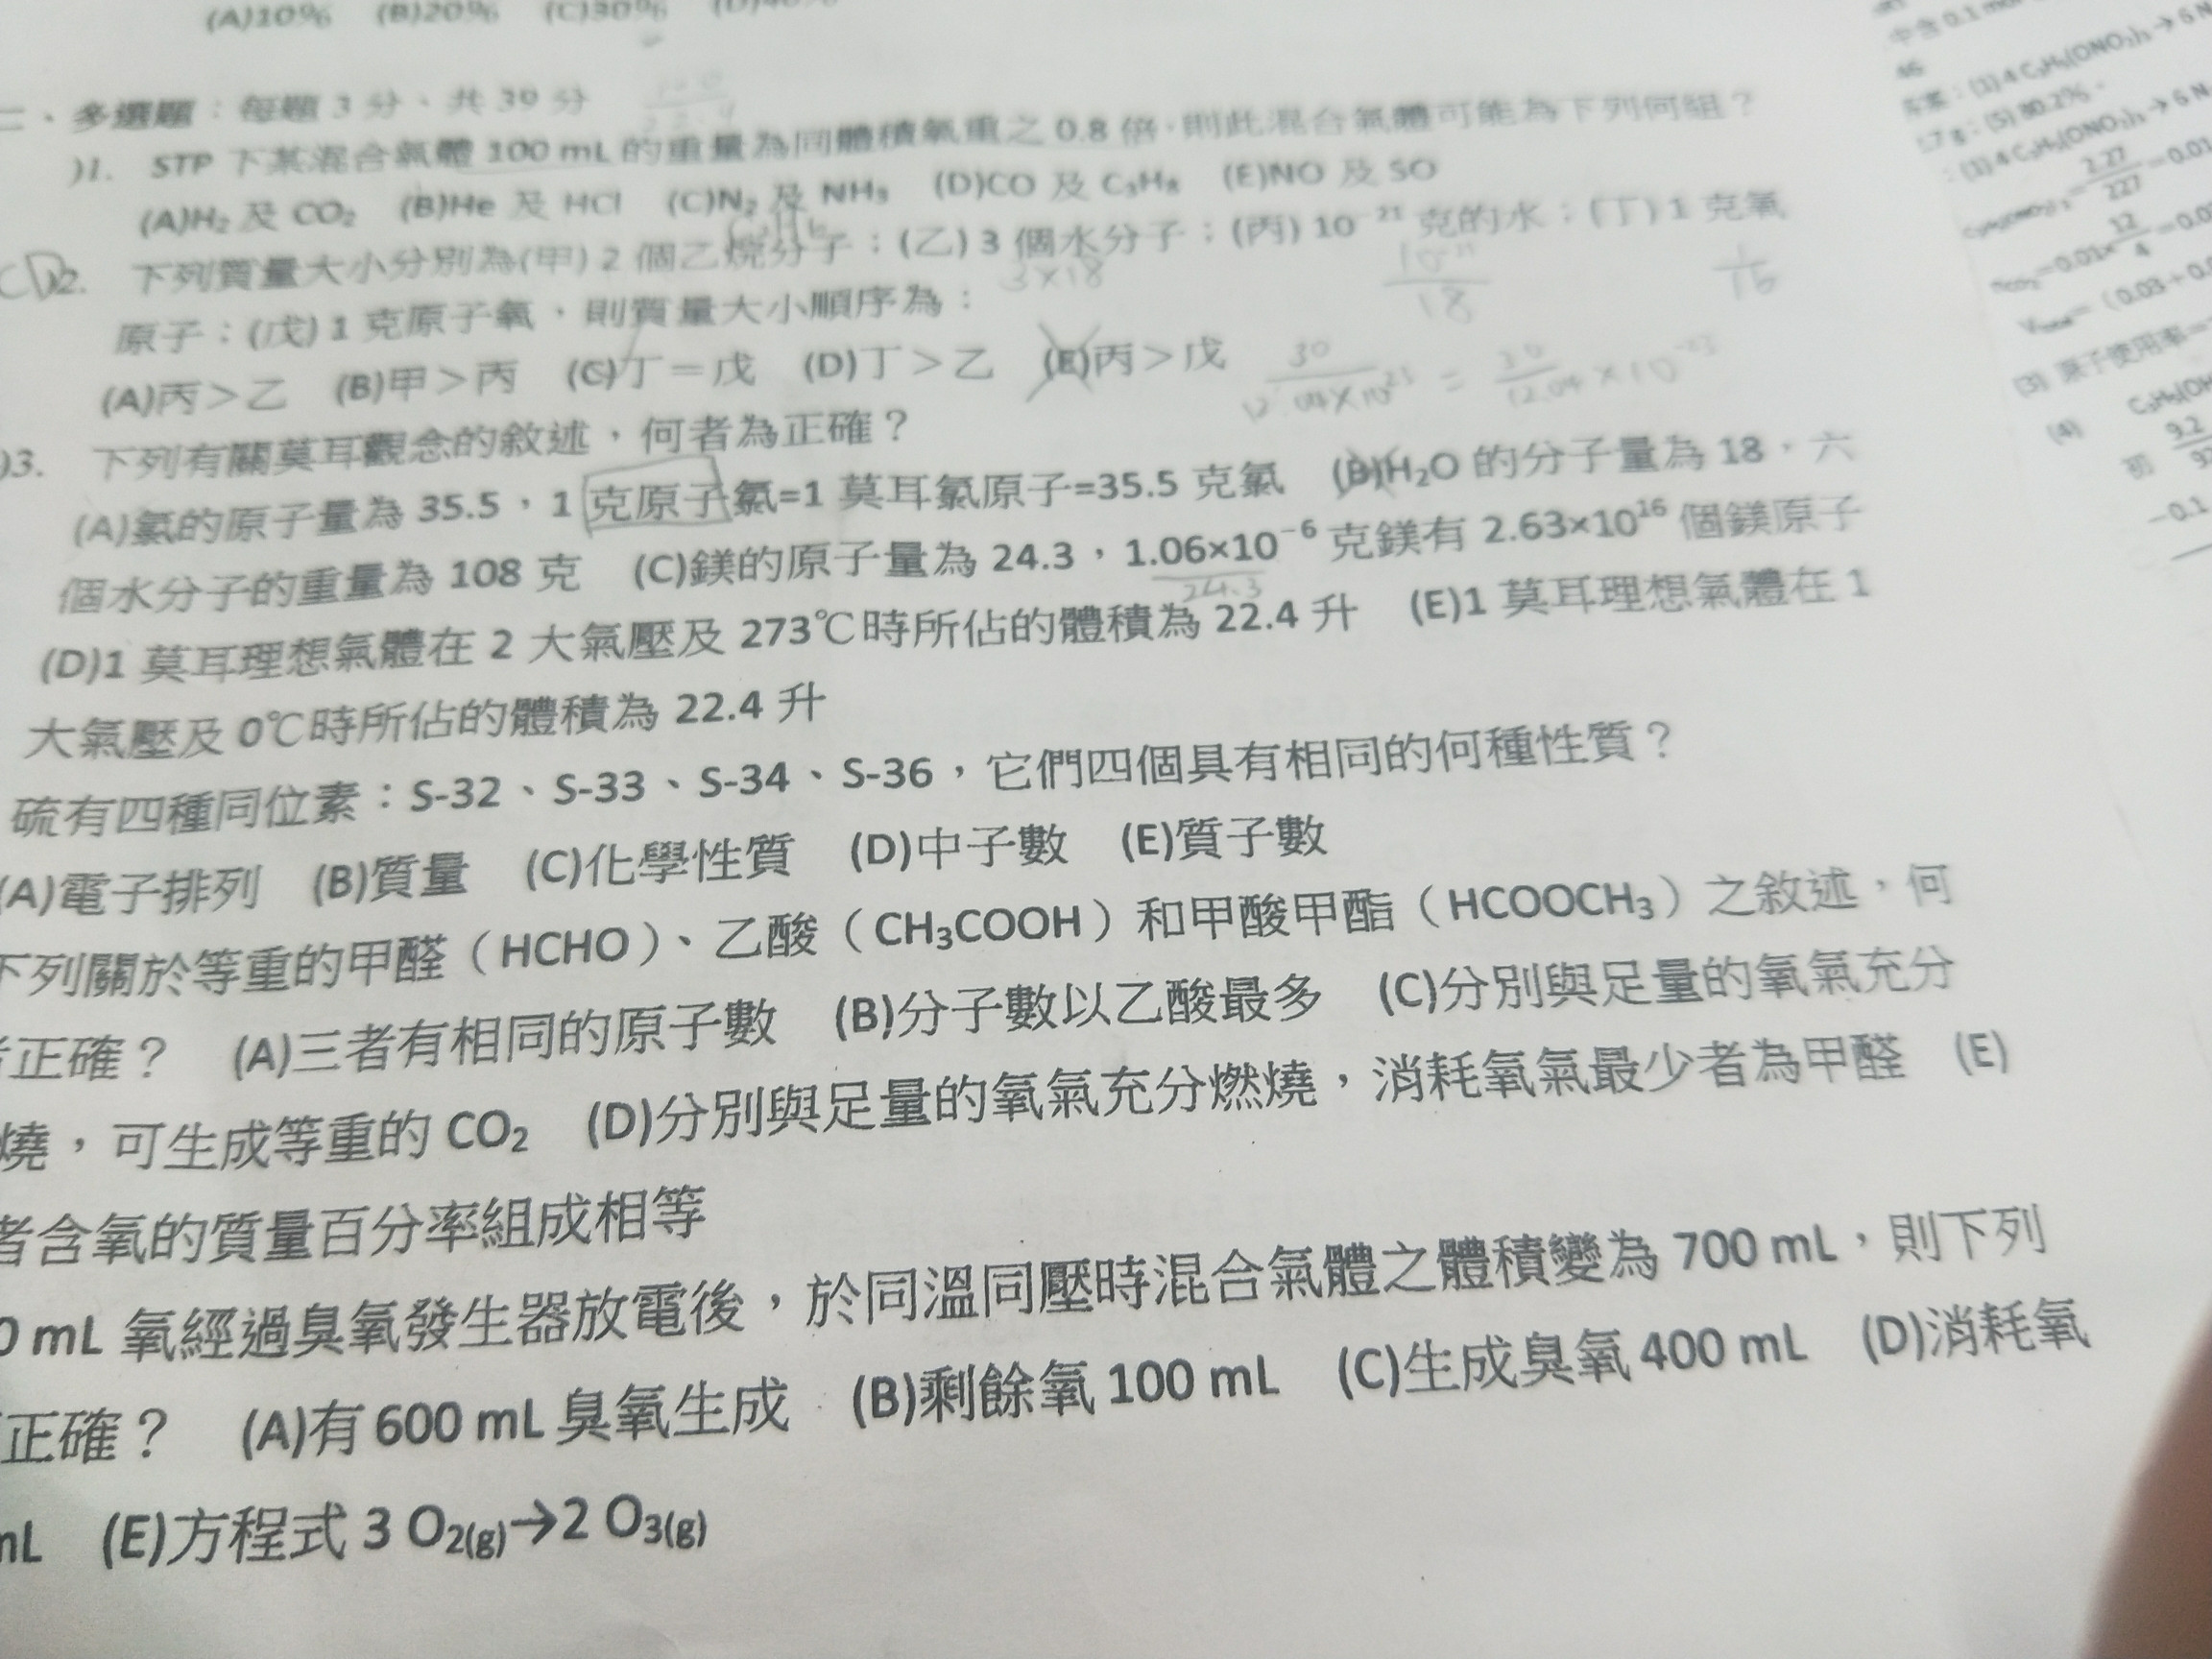 (A)10% (B)20% (C)30% (D)40%
二、多選題：每題 3 分、共 39 分
)1. STP 下某混合氣體 100 mL 的重量為同體積氧重之 0.8 倍，則此混合氣體可能為下列何組？
(A)H₂ 及 CO₂ (B)He 及 HCl (C)N₂ 及 NH₃ (D)CO 及 C₃H₈ (E)NO 及 SO
CD)2. 下列質量大小分別為(甲) 2 個乙烷分子；(乙) 3 個水分子；(丙) 10⁻²¹ 克的水；(丁) 1 克氧
3×18
18
原子；(戊) 1 克原子氧，則質量大小順序為：
(A)丙＞乙 (B)甲＞丙 (C)丁＝戊 (D)丁＞乙 (E)丙＞戊
30/12.04×10²³ = 30/12.04 ×10⁻²³
)3. 下列有關莫耳觀念的敘述，何者為正確？
(A)氯的原子量為 35.5，1 克原子氯=1 莫耳氯原子=35.5 克氯 (B)H₂O 的分子量為 18，六
個水分子的重量為 108 克 (C)鎂的原子量為 24.3，1.06×10⁻⁶ 克鎂有 2.63×10¹⁶ 個鎂原子
24.3
(D)1 莫耳理想氣體在 2 大氣壓及 273℃時所佔的體積為 22.4 升 (E)1 莫耳理想氣體在 1
大氣壓及 0℃時所佔的體積為 22.4 升
硫有四種同位素：S-32、S-33、S-34、S-36，它們四個具有相同的何種性質？
(A)電子排列 (B)質量 (C)化學性質 (D)中子數 (E)質子數
下列關於等重的甲醛（HCHO）、乙酸（CH₃COOH）和甲酸甲酯（HCOOCH₃）之敘述，何
者正確？ (A)三者有相同的原子數 (B)分子數以乙酸最多 (C)分別與足量的氧氣充分
燒，可生成等重的 CO₂ (D)分別與足量的氧氣充分燃燒，消耗氧氣最少者為甲醛 (E)
者含氧的質量百分率組成相等
0 mL 氧經過臭氧發生器放電後，於同溫同壓時混合氣體之體積變為 700 mL，則下列
正確？ (A)有 600 mL 臭氧生成 (B)剩餘氧 100 mL (C)生成臭氧 400 mL (D)消耗氧
mL (E)方程式 3 O₂(g)→2 O₃(g)
中含 0.1
(3) 原子使用率=
(4)
9.2
-0.1